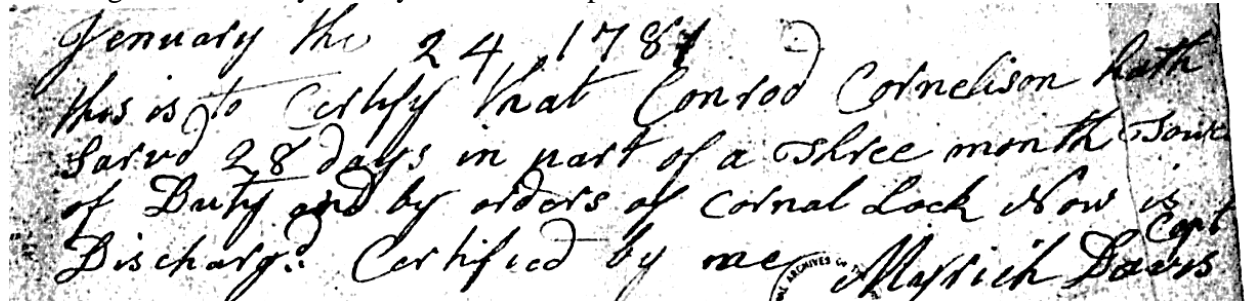 Jenuary the 24 1781
this is to Certify that Conrod Cornelison hath
Sarvd 28 days in part of a Three month Tour
of Duty and by orders of Cornal Lock Now is
Dischargd. Certified by me Myrick Davis Capt